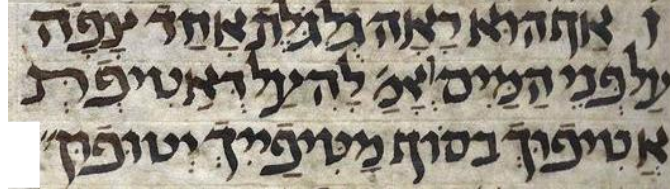 ו אף הוא ראה גלגלת אחד צפה
על פני המים ואמ' לה על דאטיפת
אטיפוך בסוף מטיפייך יטופון